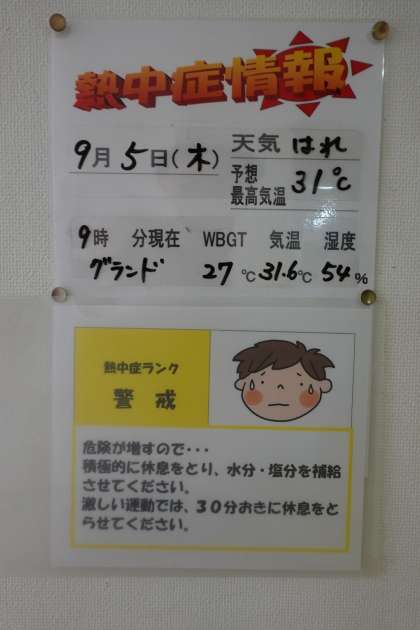 熱中症情報
9月5日(木)
天気 はれ
予想
最高気温 31℃
9時 分現在 WBGT 気温 湿度
グランド 27℃ 31.6℃ 54%
熱中症ランク
警戒
危険が増すので・・・
積極的に休息をとり、水分・塩分を補給
させてください。
激しい運動では、30分おきに休息をと
らせてください。